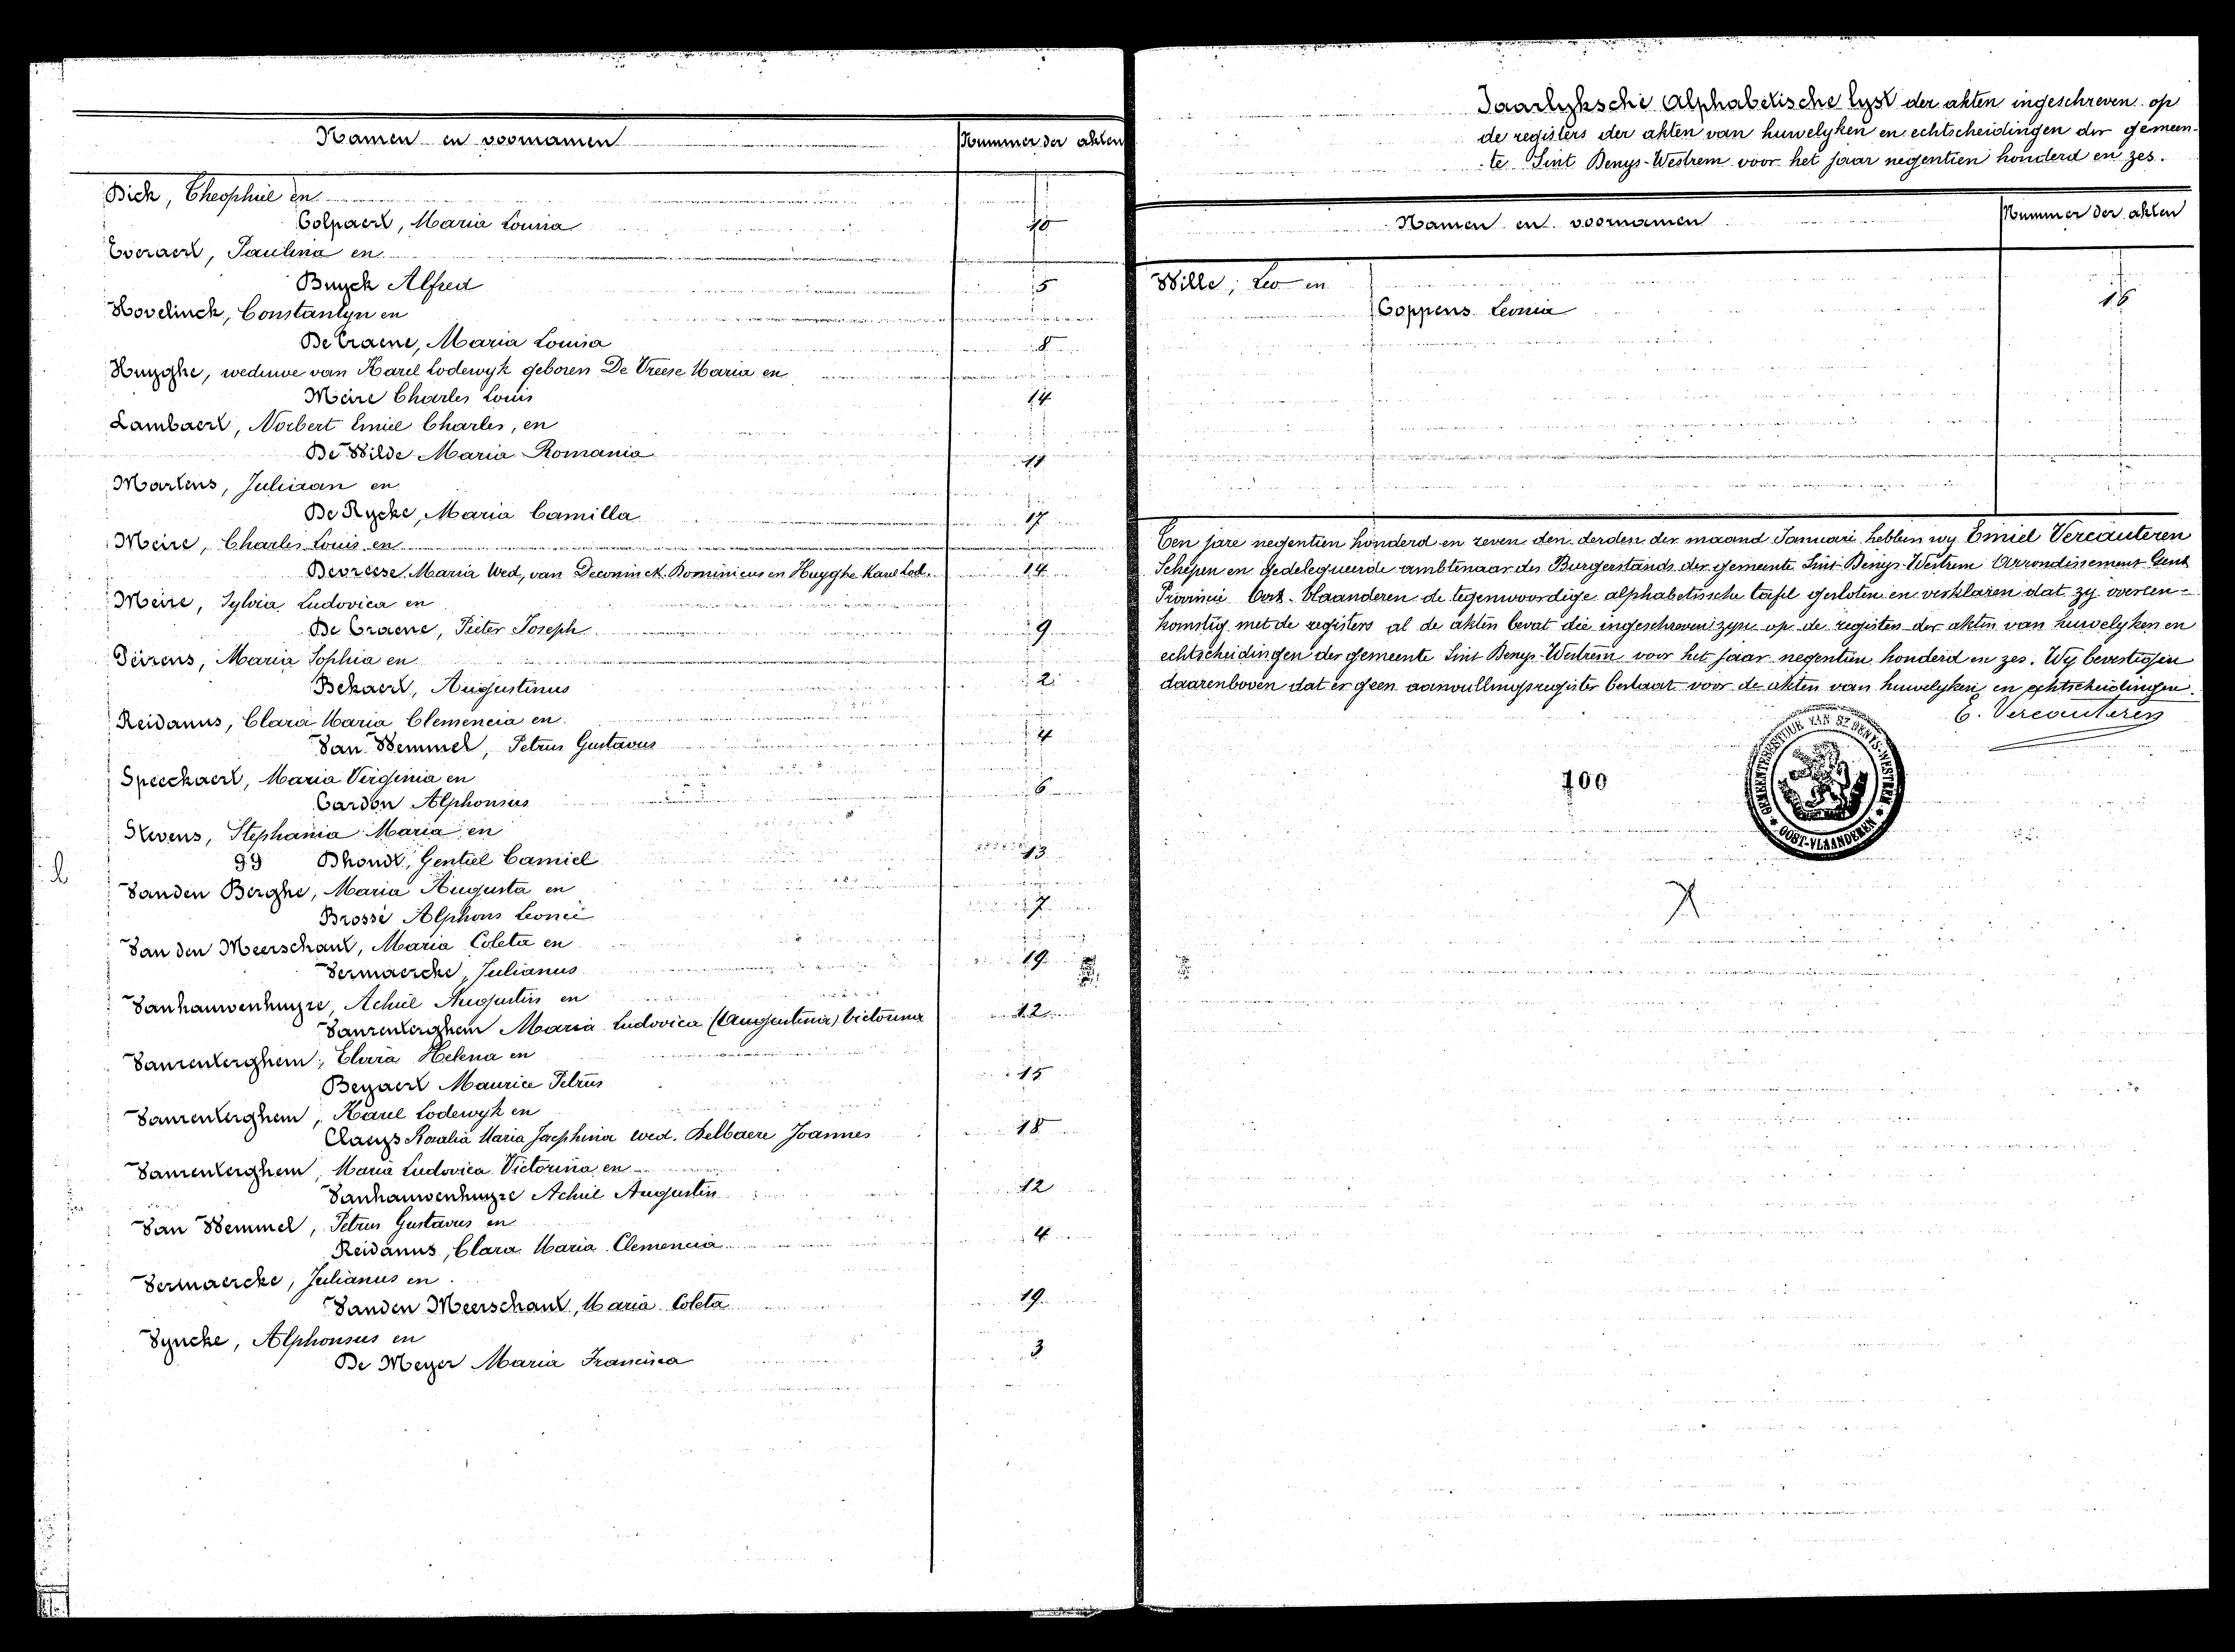 Namen en voornamen
Nummer der akten
Dick, Theophiel en
Colpaert, Maria Louisa
10
Everaert, Paulina en
Buyck Alfred
5
Hovelinck, Constantyn en
De Craene, Maria Louisa
8
Huyghe, weduwe van Karel Lodewyk geboren De Vreese Maria en
Meire Charles Louis
14
Lambaert, Norbert Emiel Charles, en
De Wilde Maria Romania
11
Martens, Juliaan en
De Rycke, Maria Camilla
17
Meire, Charles Louis en
Devreese Maria Wed, van Deconinck Dominicus en Huyghe Karel Lod.
14
Meire, Sylvia Ludovica en
De Craene, Pieter Joseph
9
Peirens, Maria Sophia en
Bekaert, Augustinus
2
Reidanus, Clara Maria Clemencia en
Van Wemmel, Petrus Gustavus
4
Speeckaert, Maria Virginia en
Cardon Alphonsus
6
Stevens, Stephania Maria en
99 Dhondt, Gentiel Camiel
13
Vanden Berghe, Maria Augusta en
Brossé Alphons Leonie
7
Van den Meerschaut, Maria Coleta en
Vermaercke, Julianus
19
Vanhauwenhuyze, Achiel Augustin en
Vanrenterghem Maria Ludovica (Augustina) Victorina
12
Vanrenterghem, Clara Helena en
Beyaert Maurice Petrus
15
Vanrenterghem, Karel Lodewyk en
Claeys Rosalia Maria Josephina wed. Delbaere Joannes
18
Vanrenterghem, Maria Ludovica Victorina en
Vanhauwenhuyze Achiel Augustin
12
Van Wemmel, Petrus Gustavus en
Reidanus, Clara Maria Clemencia
4
Vermaercke, Julianus en
Vanden Meerschaut, Maria Coleta
19
Vyncke, Alphonsus en
De Meyer Maria Francisca
3
Jaarlyksche Alphabetische lyst der akten ingeschreven op
de registers der akten van huwelyken en echtscheidingen der gemeen-
te Sint Denys-Westrem voor het jaar negentien honderd en zes.
Namen en voornamen
Nummer der akten
Wille, Leo en
Coppens Leonia
16
Ten jare negentien honderd en zeven den derden der maand Januari hebben wy Emiel Vercauteren
Schepen en gedelegueerde ambtenaar des Burgerstands der gemeente Sint-Denys-Westrem Arrondissement Gent
Provincie Oost-Vlaanderen de tegenwoordige alphabetische tafel gesloten en verklaren dat zy overeen-
komstig met de registers al de akten bevat die ingeschreven zyn op de registers der akten van huwelyken en
echtscheidingen der gemeente Sint Denys-Westrem voor het jaar negentien honderd en zes. Wy bevestigen
daarenboven dat er geen aanvullingsregister bestaat voor de akten van huwelyken en echtscheidingen.
E. Vercauteren
GEMEENTEBESTUUR VAN ST DENYS-WESTREM
OOST-VLAANDEREN
100